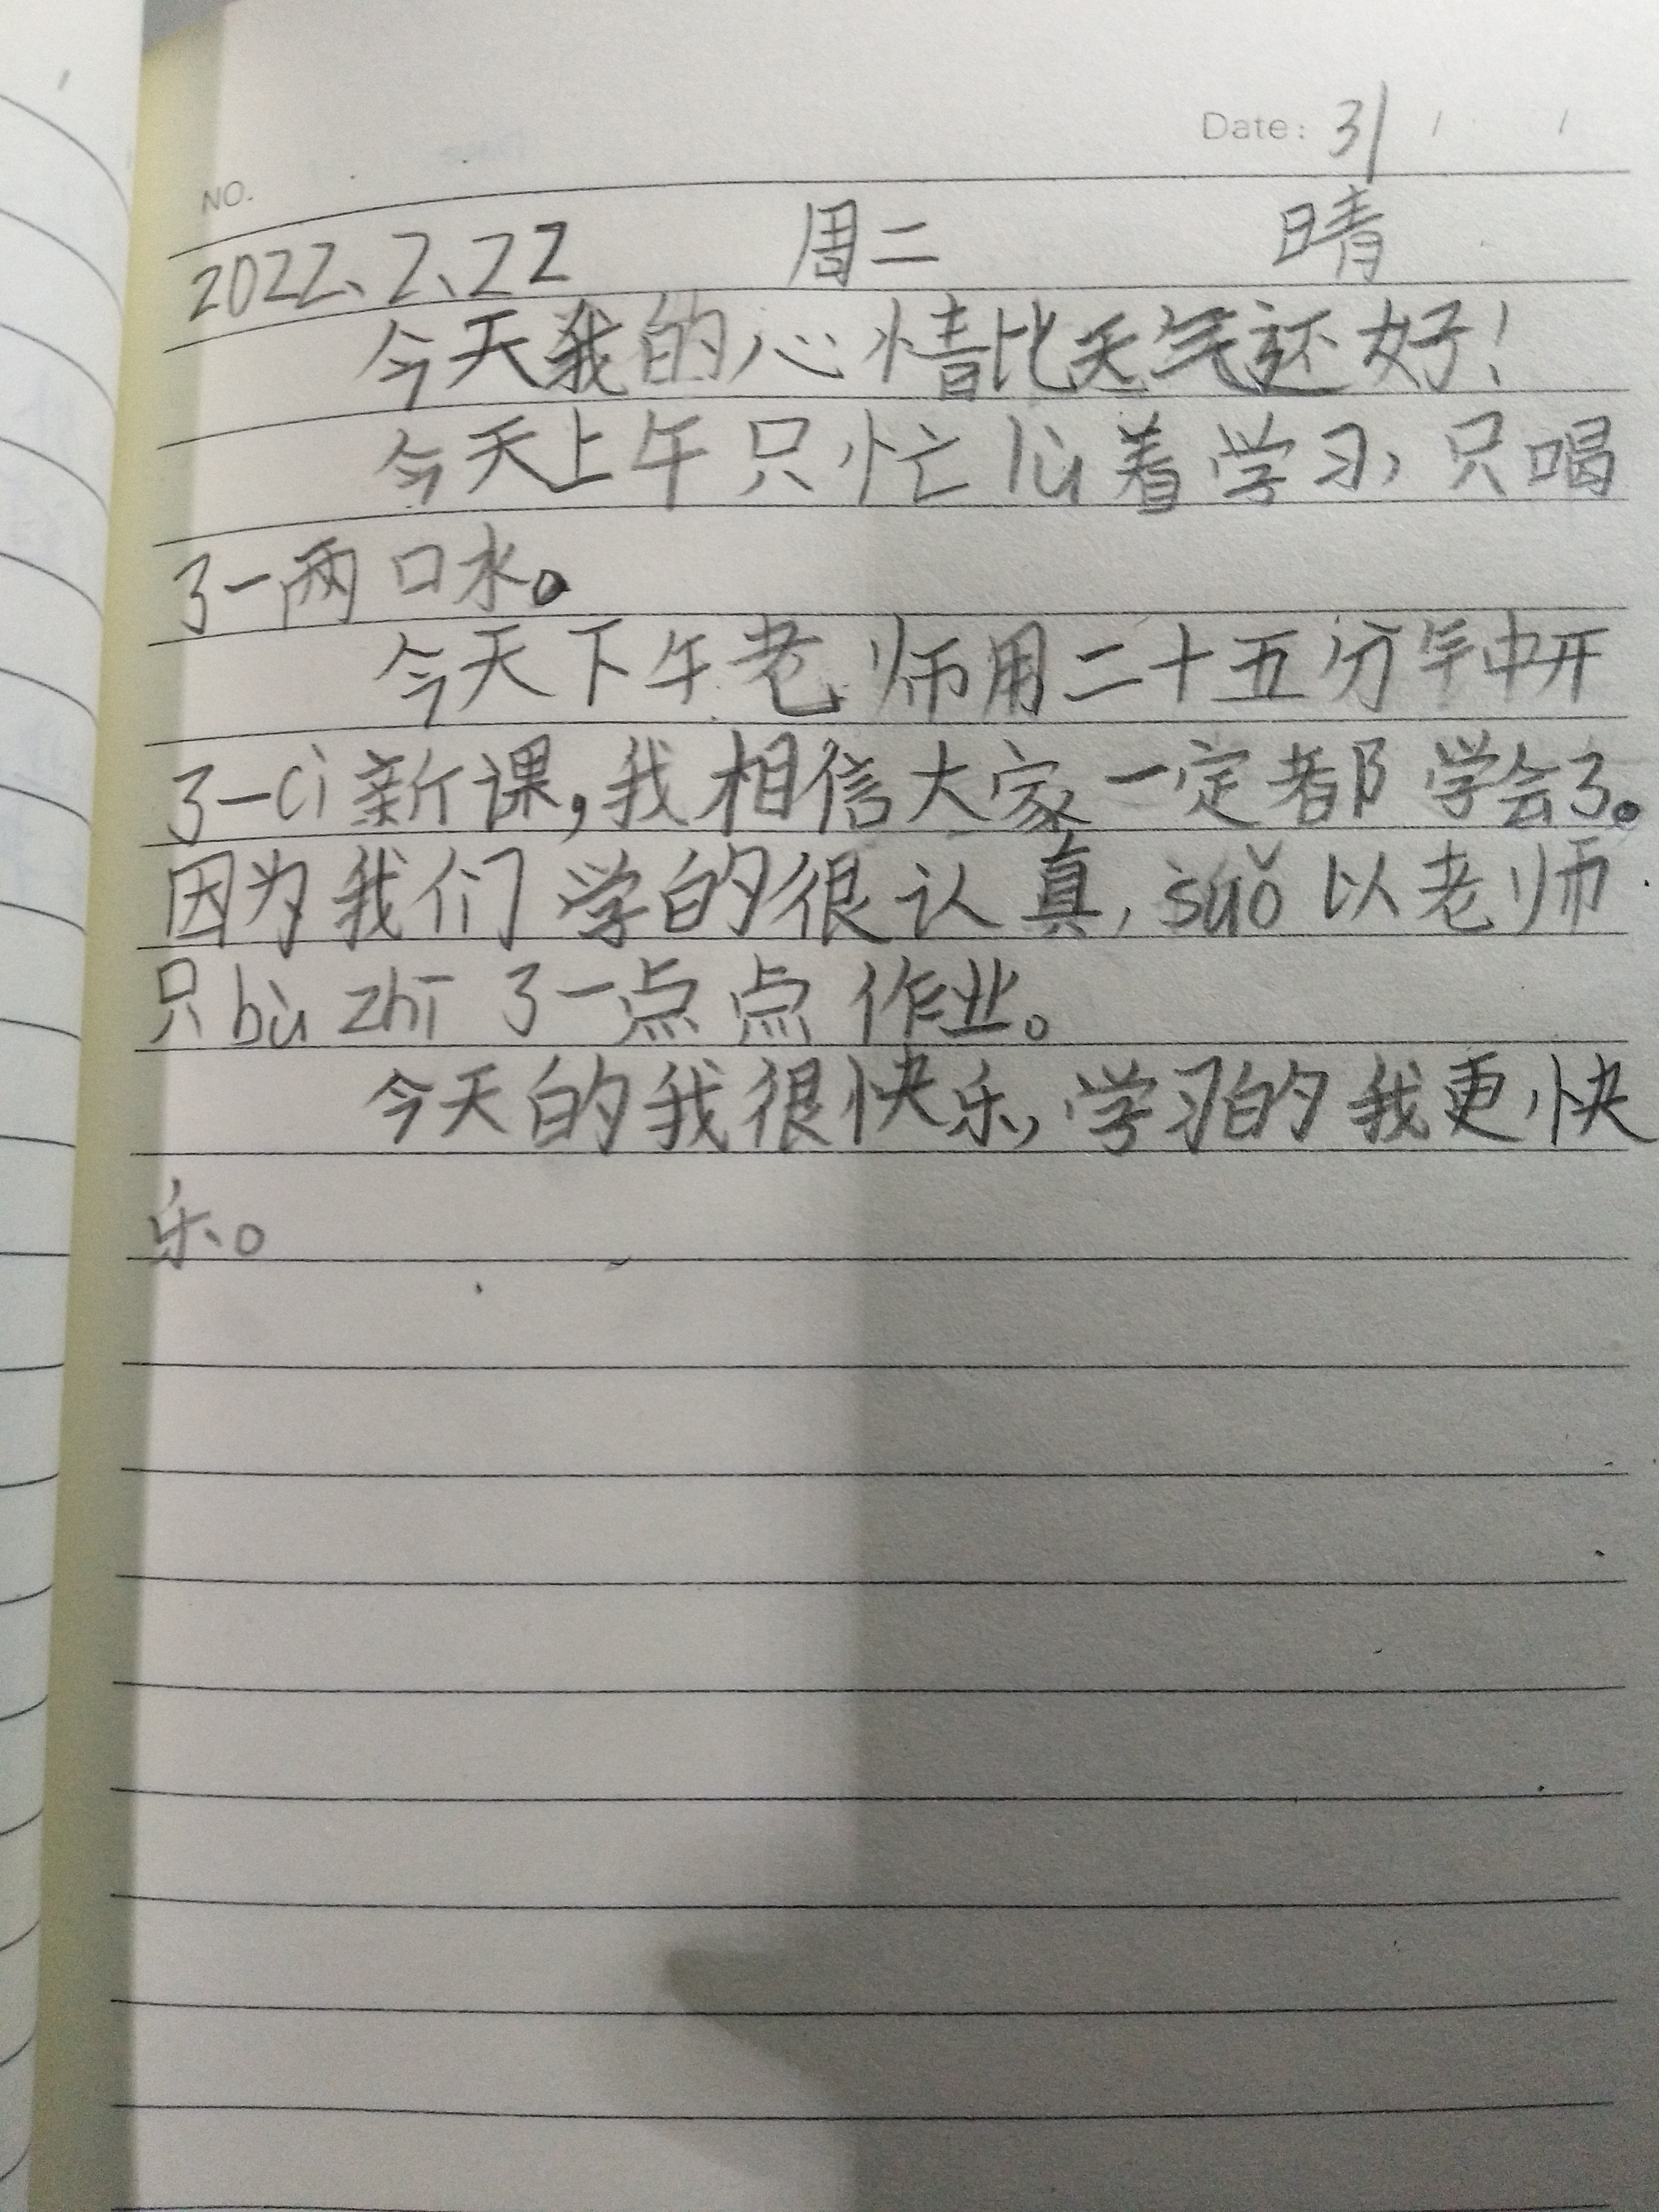 Date: 31 / /
NO.
2022、2、22 周二 晴
今天我的心情比天气还好！
今天上午只忙lù着学习，只喝
了一两口水。
今天下午老师用二十五分钟开
了一ci新课，我相信大家一定都学会了。
因为我们学的很认真，suǒ以老师
只bù zhī了一点点作业。
今天的我很快乐，学习的我更快
乐。